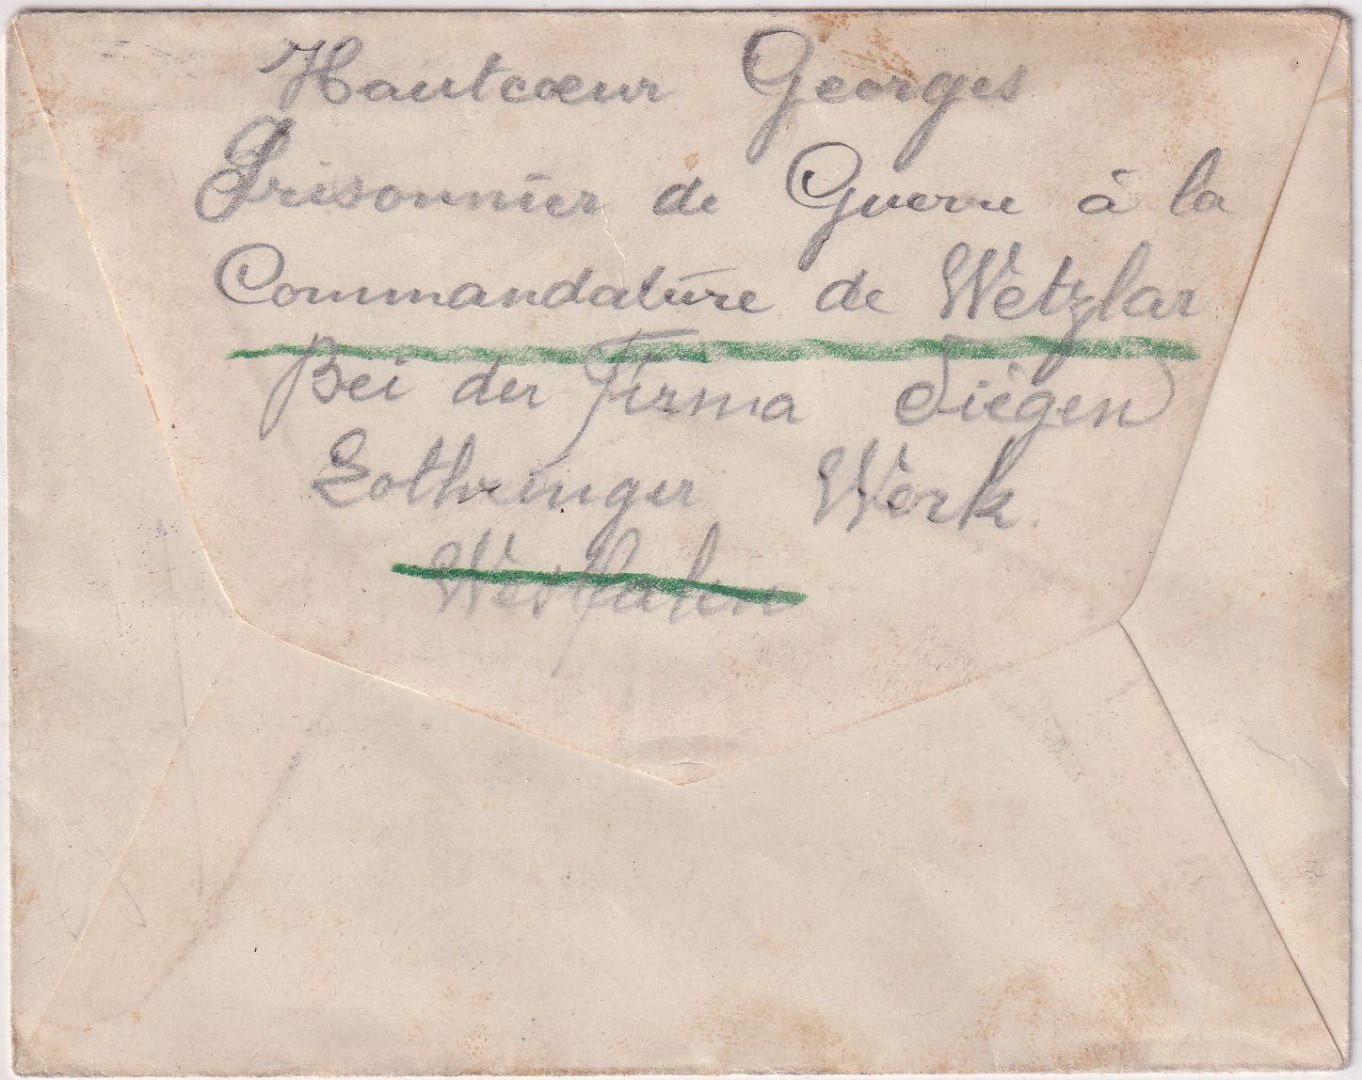 Hautcœur Georges
Prisonnier de Guerre à la
Commandature de Wetzlar
Bei der Firma Siegen
Lothringer Werk.
Westfahn